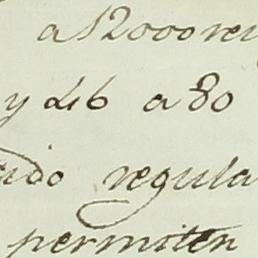 a 12000 rei
y de 6 a 80
ido regula
permiten